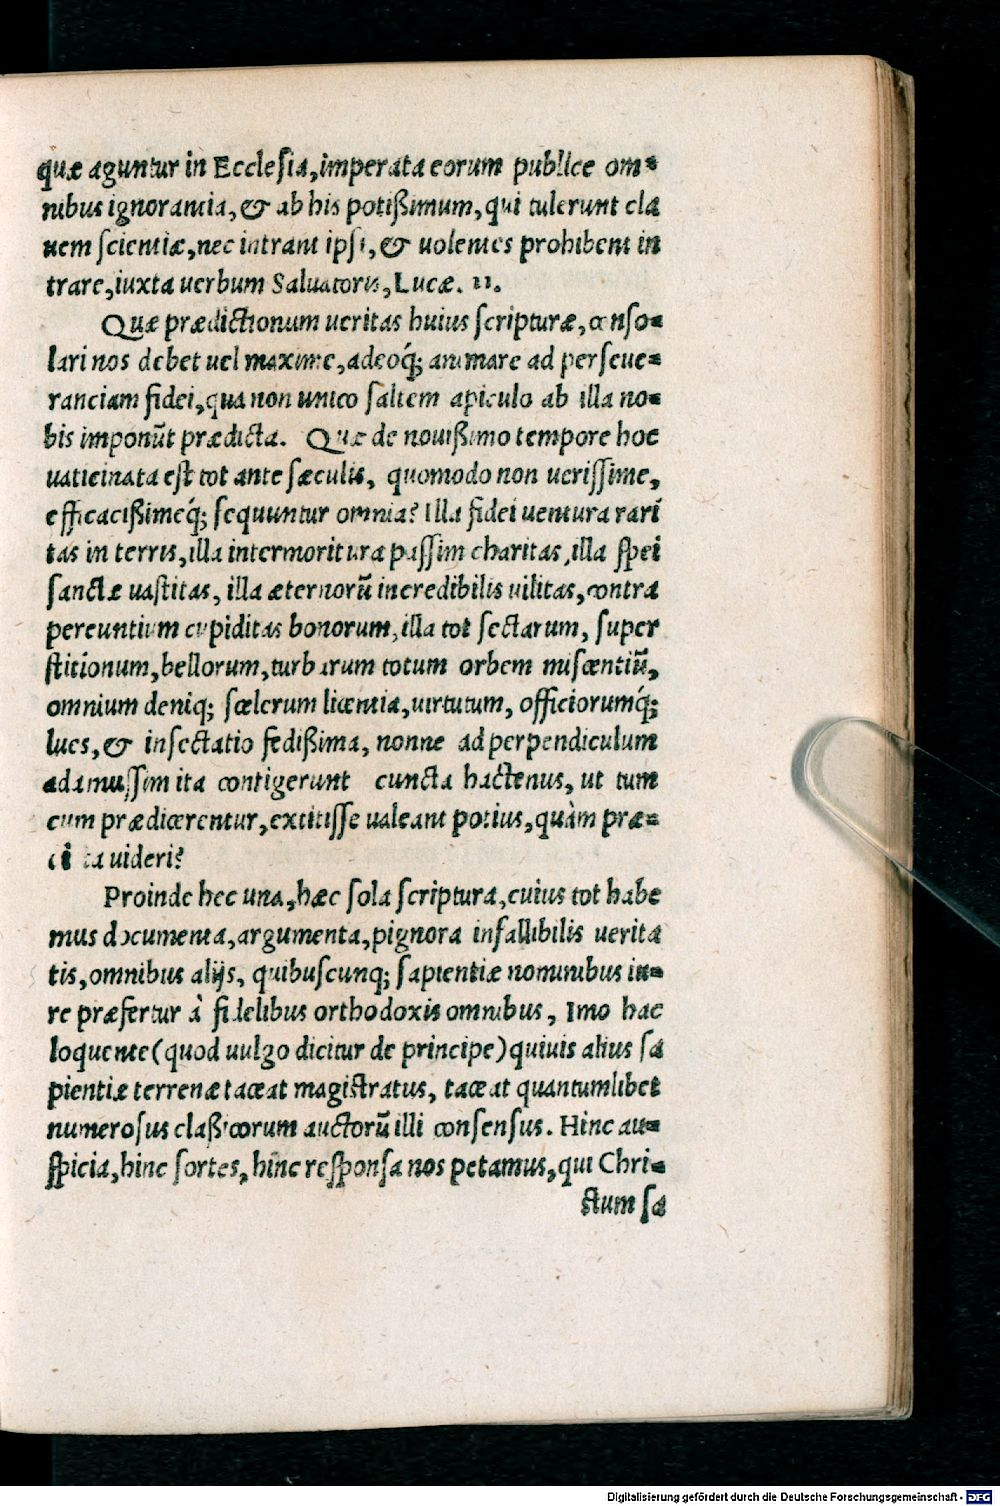 quæ aguntur in Ecclesia, imperata eorum publice om-
nibus ignorantia, & ab his potißimum, qui tulerunt cla
uem scientiæ, nec intrant ipsi, & uolentes prohibent in
trare, iuxta uerbum Saluatoris, Lucæ. 11.
Quæ prædictionum ueritas huius scripturæ, conso-
lari nos debet uel maxime, adeoq́; animare ad perseue-
ranciam fidei, qua non unico saltem apiculo ab illa no-
bis imponũt prædicta. Quæ de nouißimo tempore hoc
uaticinata est tot ante sæculis, quomodo non uerissime,
efficacißimeq́; sequuntur omnia? Illa fidei uentura rari
tas in terris, illa intermoritura passim charitas, illa spei
sanctæ uastitas, illa æternorũ incredibilis uilitas, contra
pereuntium cupiditas bonorum, illa tot sectarum, super
stitionum, bellorum, turbarum totum orbem miscentiũ,
omnium deniq; scelerum licentia, uirtutum, officiorumq́;
lues, & insectatio fedißima, nonne ad perpendiculum
adamussim ita contigerunt cuncta hactenus, ut tum
cum prædicerentur, extitisse ualeant potius, quàm præ-
uideri?
Proinde hec una, hæc sola scriptura, cuius tot habe
mus documenta, argumenta, pignora infallibilis uerita
tis, omnibus alijs, quibuscunq; sapientiæ nominibus iu-
re præfertur à fidelibus orthodoxis omnibus, Imo hac
loquente (quod uulgo dicitur de principe) quiuis alius sa
pientiæ terrenæ taceat magistratus, taceat quantumlibet
numerosus claßicorum auctorũ illi consensus. Hinc au-
spicia, hinc sortes, hinc responsa nos petamus, qui Chri-
stum sa
Digitalisierung gefördert durch die Deutsche Forschungsgemeinschaft - DFG